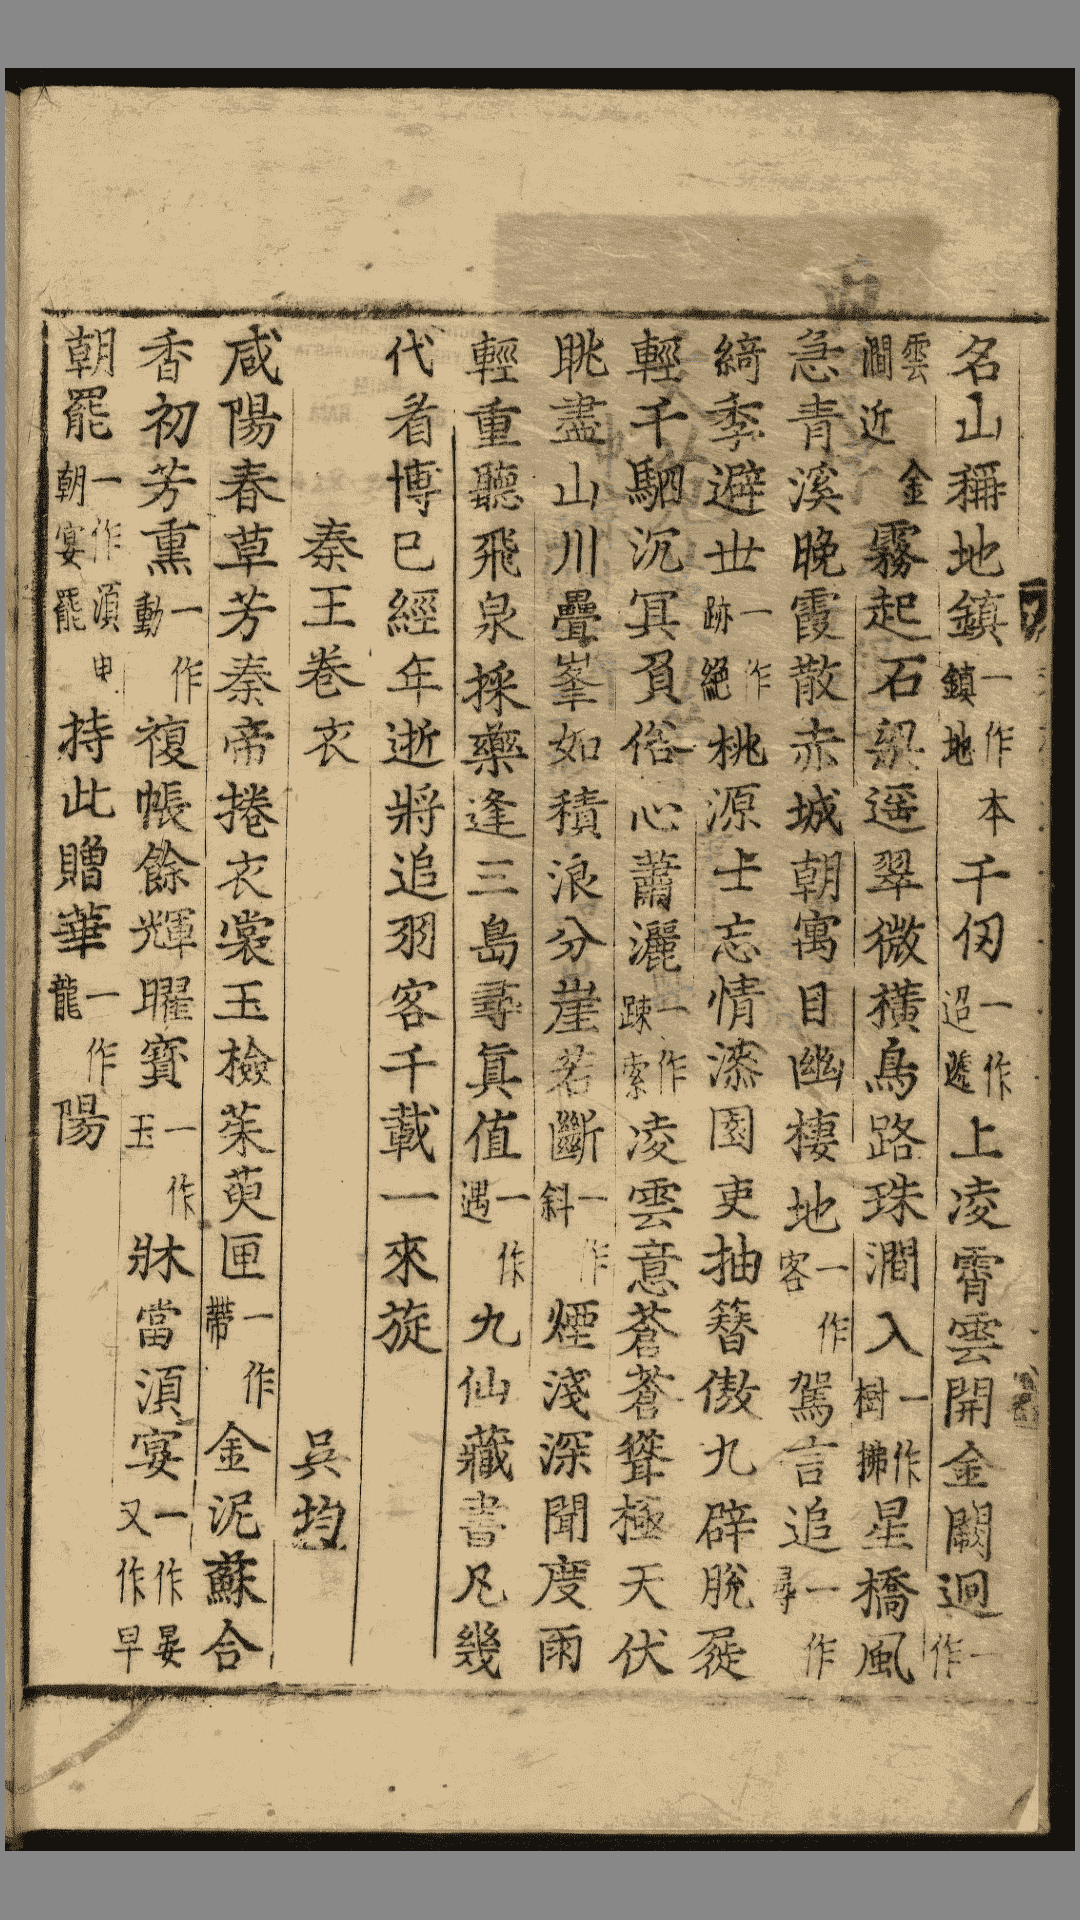 名山稱地鎮一作鎮地本千仞一作迢遞上凌霄雲開金闕迥一作
雲澗近金霧起石梁遥翠微横鳥路珠澗入一作樹拂星橋風
急青溪晚霞散赤城朝寓目幽棲地一作客駕言追一作尋
綺季避丗一作跡絕桃源士忘情漆園吏抽簪傲九辟脫屣
輕千駟沉冥負俗心蕭灑作踈索凌雲意蒼蒼聳極天伏
眺盡山川疊峯如積浪分崖若斷一作斜煙淺深聞度雨
輕重聽飛泉採藥逢三島尋真值一作遇九仙藏書凡幾
代看博已經年逝將追羽客千載一來旋
秦王卷衣 吳均
咸陽春草芳秦帝捲衣裳玉檢茱萸匣一作帶金泥蘇合
香初芳熏一作動複帳餘輝曜寶一作玉牀當須宴一作晏又作早
朝罷一作須申朝宴罷持此贈華一作龍陽